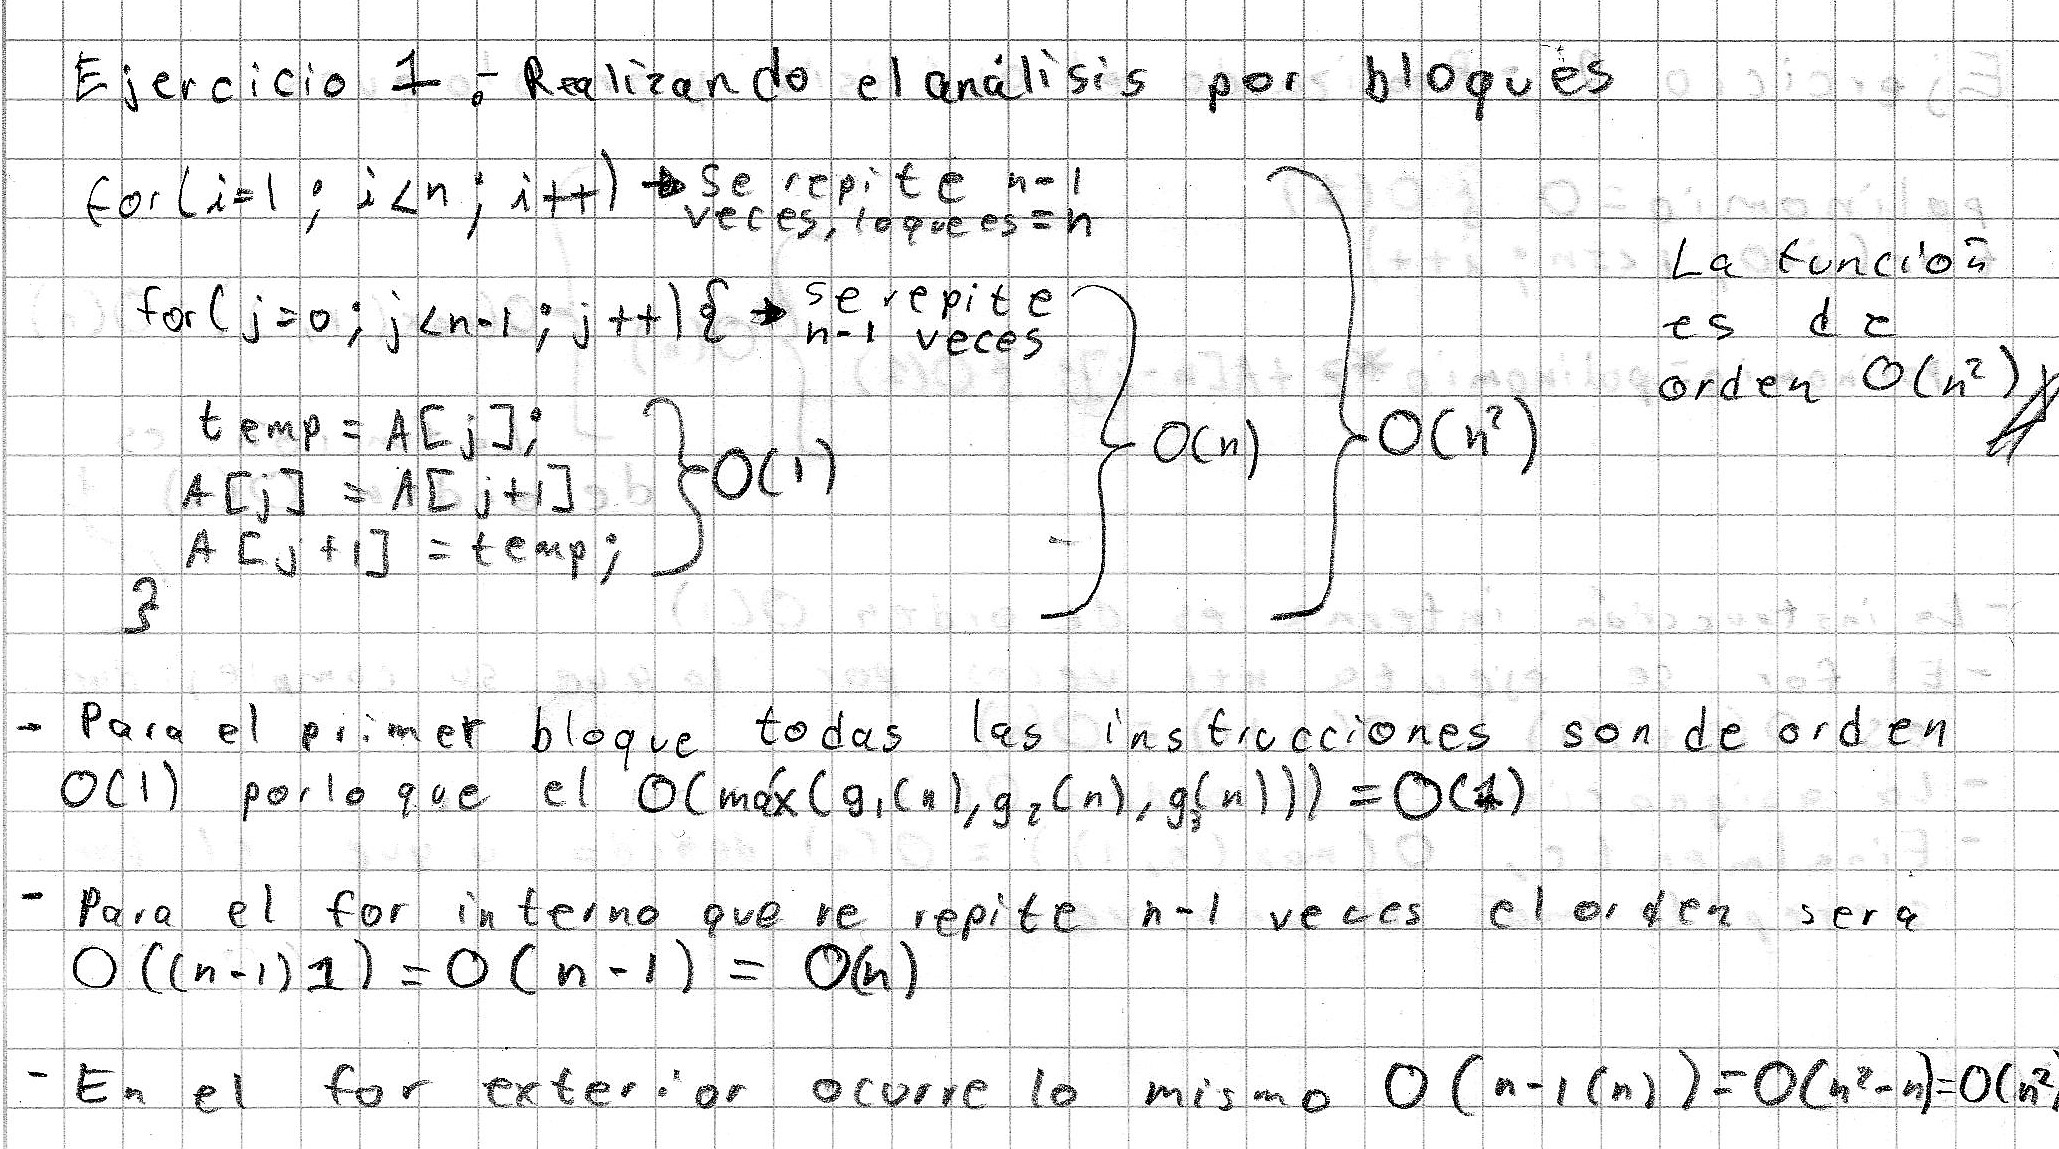 Ejercicio 1.- Realizando el análisis por bloques
for(i=1; i<n; i++) → se repite n-1
veces, lo que es = n
for(j=0; j<n-1; j++){ → se repite
n-1 veces
temp = A[j];
A[j] = A[j+1]
A[j+1] = temp;
}
O(1)
O(n)
O(n²)
La función
es de
orden O(n²)
- Para el primer bloque todas las instrucciones son de orden
O(1) por lo que el O(máx(g₁(n), g₂(n), g₃(n))) = O(1)
- Para el for interno que se repite n-1 veces el orden sera
O((n-1)1) = O(n-1) = O(n)
- En el for exterior ocurre lo mismo O(n-1(n)) = O(n²-n) = O(n²)